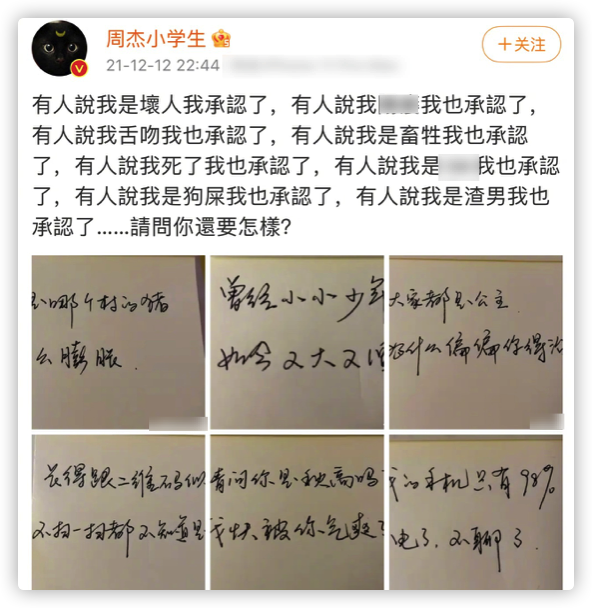 周杰小学生
21-12-12 22:44
+关注
有人說我是壞人我承認了，有人說我我也承認了，
有人說我舌吻我也承認了，有人說我是畜牲我也承認
了，有人說我死了我也承認了，有人說我是我也承認
了，有人說我是狗屎我也承認了，有人說我是渣男我也
承認了……請問你還要怎樣?
是哪个村的猪
么膨胀.
曾经小小少年
如今又大又
大家都是公主
为什么偏偏你得
长得跟二维码似
不扫一扫都不知道是
请问你是秋高吗
我快被你气爽了
我的手机只有98%
电了.不聊了.